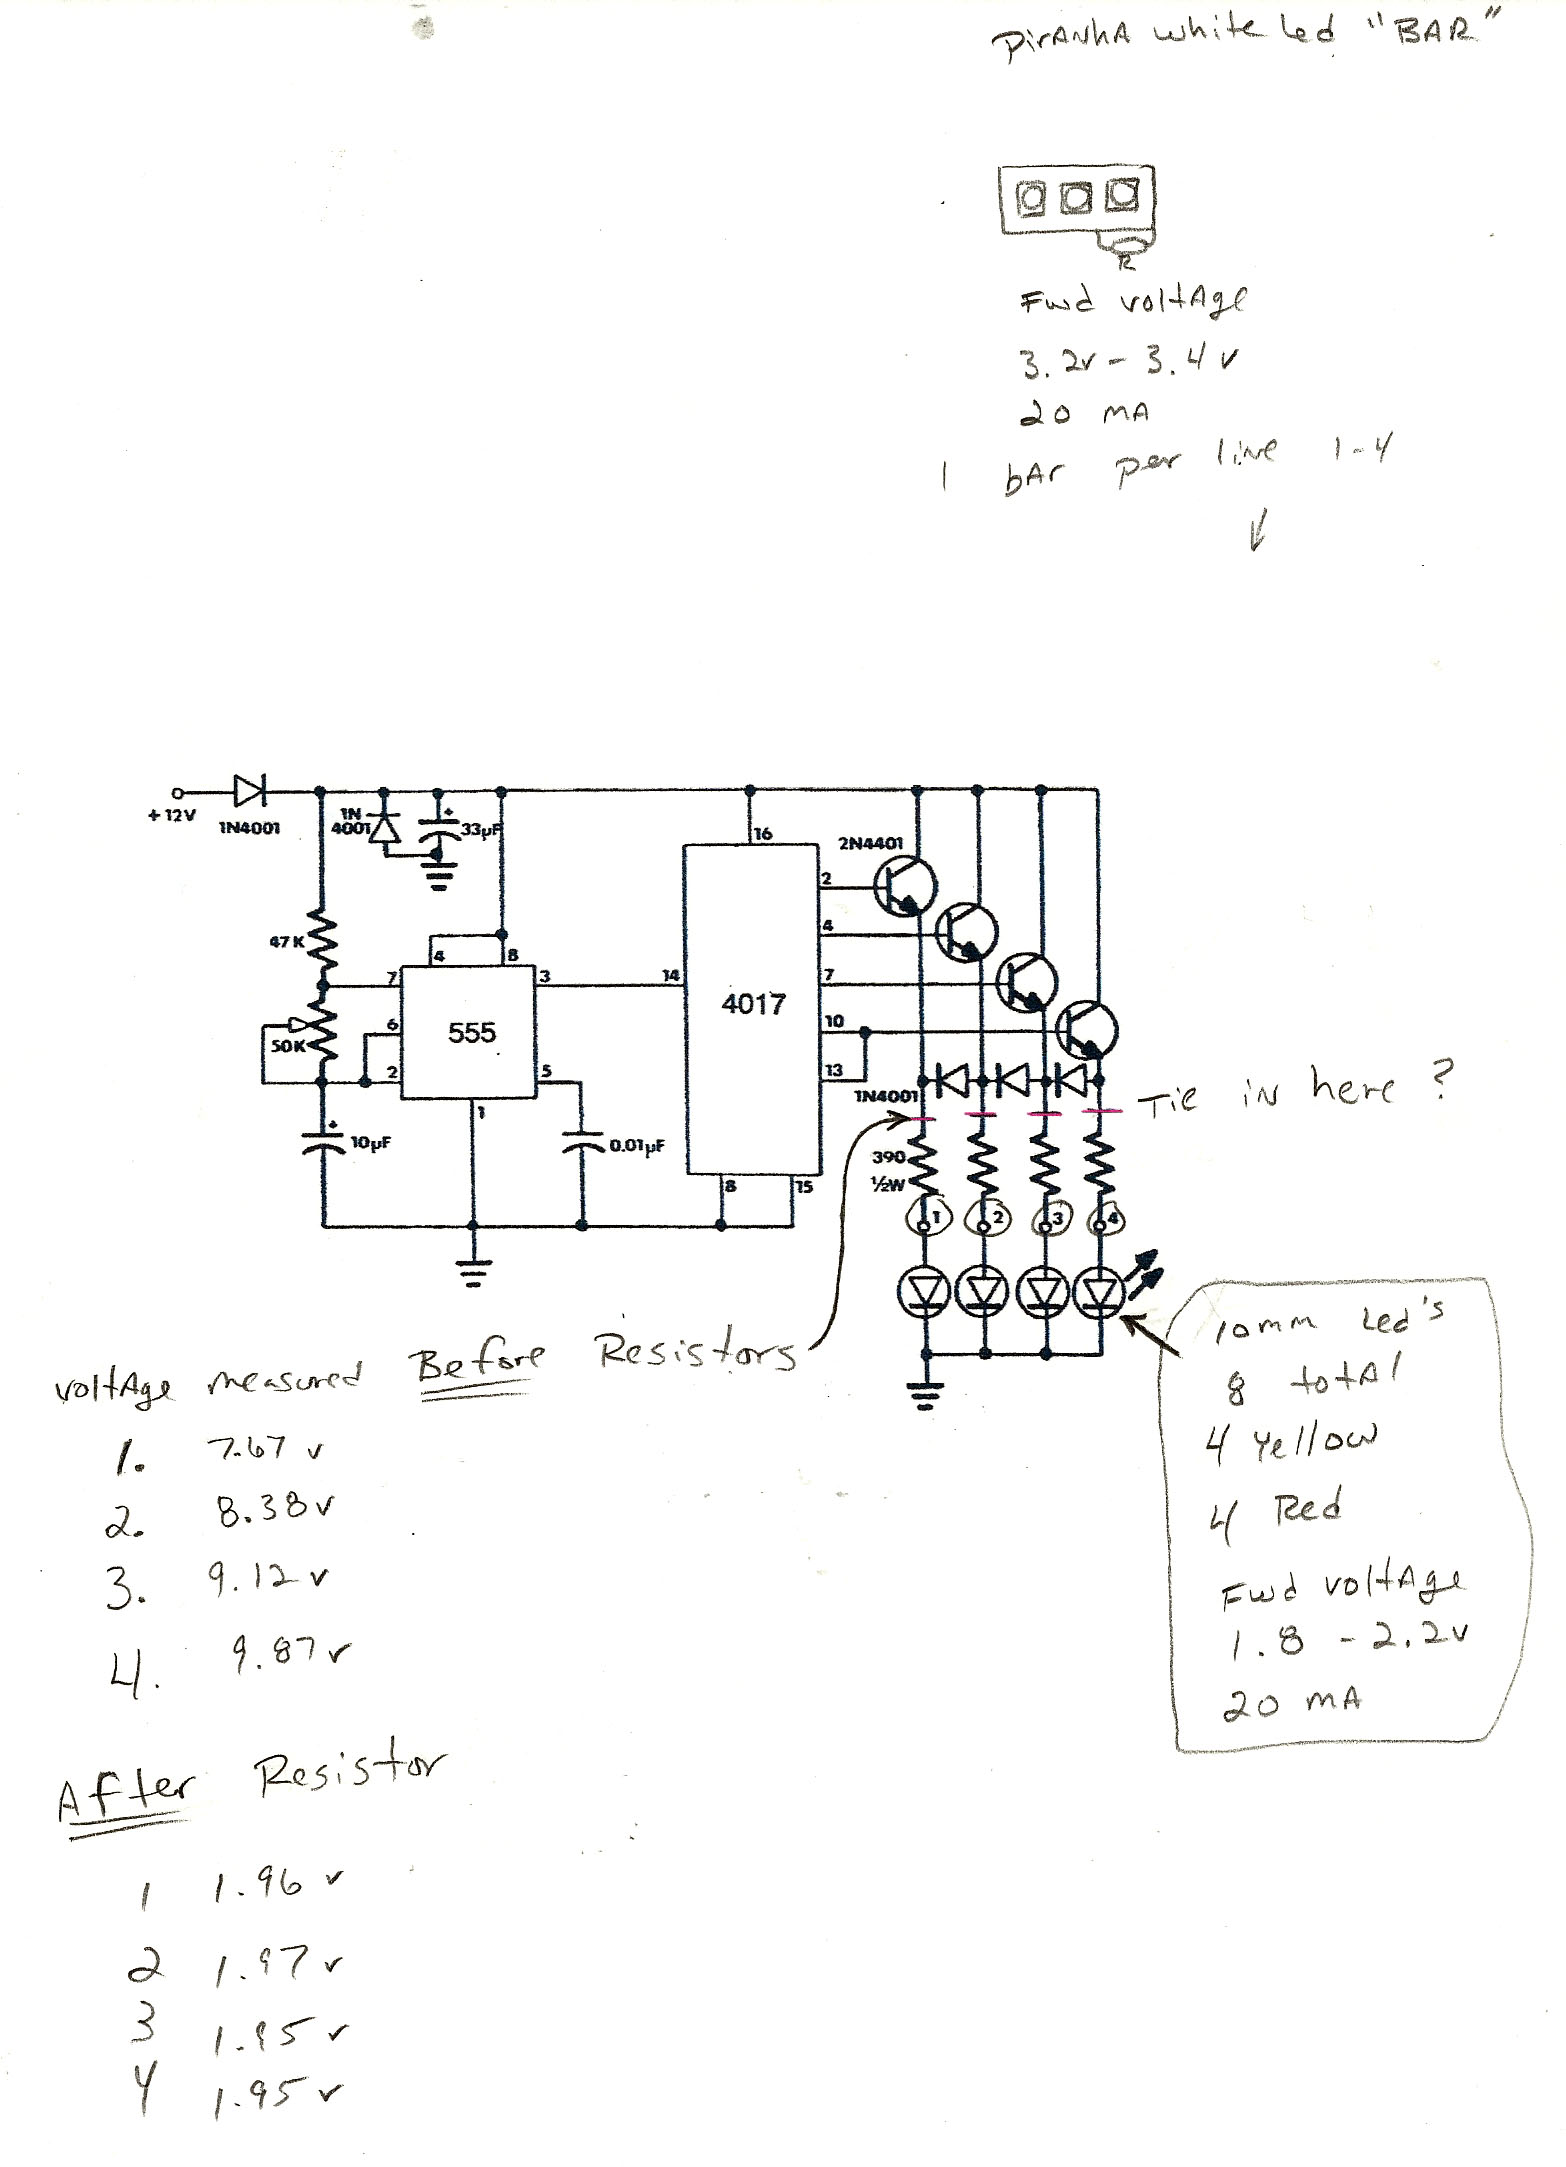 PirANhA white Led "BAR"
R
Fwd voltAge
3.2v - 3.4v
20 mA
1 bAr per line 1-4
+12V
1N4001
1N
4001
33µF
16
2N4401
2
4
7
10
13
47K
50K
4
8
7
6
2
3
5
1
555
14
4017
8
15
10µF
0.01µF
1N4001
Tie iN here ?
390
½W
1
2
3
4
voltAge measured Before Resistors
1. 7.67 v
2. 8.38 v
3. 9.12 v
4. 9.87 v
10mm Led's
8 totAl
4 Yellow
4 Red
Fwd voltAge
1.8 - 2.2v
20 mA
After Resistor
1 1.96 v
2 1.97 v
3 1.95 v
4 1.95 v